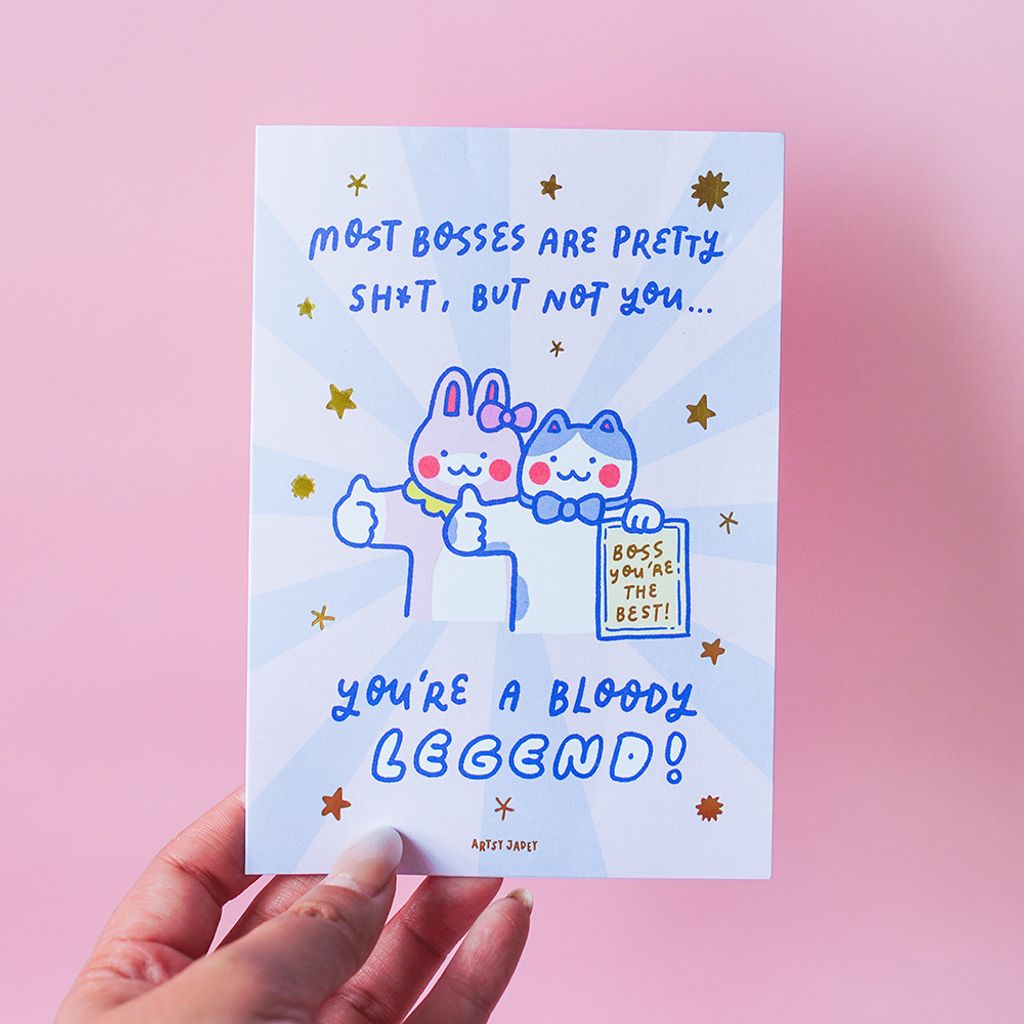 MOST BOSSES ARE PRETTY
SH*T, BUT NOT YOU...
BOSS
YOU'RE
THE
BEST!
YOU'RE A BLOODY
LEGEND!
ARTSY JADEY